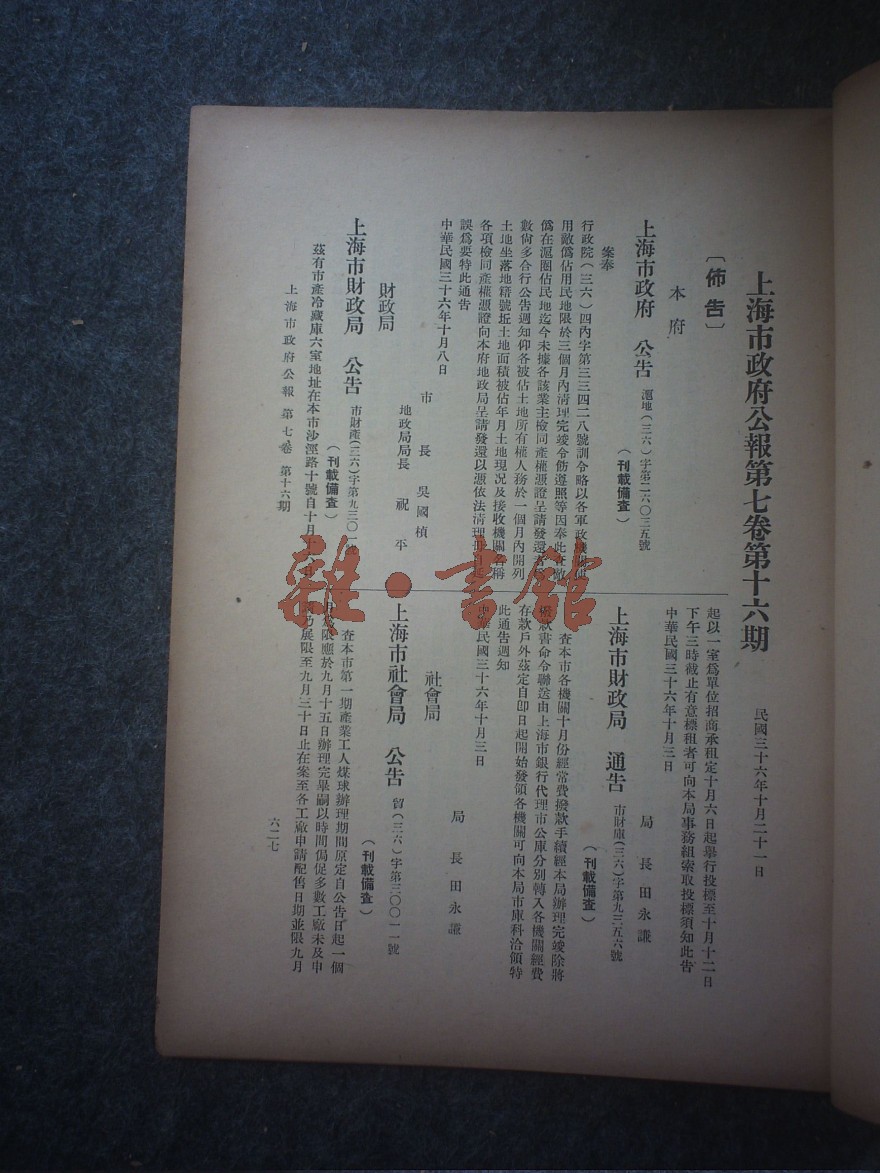 上海市政府公報第七卷第十六期
民國三十六年十月二十一日
〔佈告〕
本府
上海市政府　公告　滬地(三六)字第二六〇三五號
(刊載備查)
案奉
行政院(三六)四內字第三三四二八號訓令略以各軍政機關使
用敵僞佔用民地限於三個月內清理完竣令飭遵照等因奉此查敵
僞在滬圈佔民地迄今未據各該業主檢同產權憑證呈請發還者
數尙多合行公告週知仰各被佔土地所有權人務於一個月內開列
土地坐落地籍號坵土地面積被佔年月土地現況及接收機關名稱
各項檢同產權憑證向本府地政局呈請發還以憑依法清理
誤爲要特此通告
中華民國三十六年十月八日
市長　吳國楨
地政局局長　祝平
財政局
上海市財政局　公告　市財產(三六)字第九三〇一號
(刊載備查)
茲有市產冷藏庫六室地址在本市沙涇路十號自十月十六日
起以一室爲單位招商承租定十月六日起舉行投標至十月十二日
下午三時截止有意標租者可向本局事務組索取投標須知此告
中華民國三十六年十月三日
局長田永謙
上海市財政局　通告　市財庫(三六)字第九三五六號
(刊載備查)
查本市各機關十月份經常費撥款手續經本局辦理完竣除將
撥款書命令聯送由上海市銀行代理市公庫分別轉入各機關經費
存款戶外茲定自卽日起開始發領各機關可向本局市庫科洽領特
此通告週知
中華民國三十六年十月三日
局長田永謙
社會局
上海市社會局　公告　留(三六)字第三〇〇一一號
(刊載備查)
查本市第一期產業工人煤球辦理期間原定自公告日起一個
月爲限應於九月十五日辦理完畢嗣以時間侷促多數工廠未及申
請乃展限至九月三十日止在案至各工廠申請配售日期並限九月
上海市政府公報　第七卷　第十六期
六二七
雜・書館